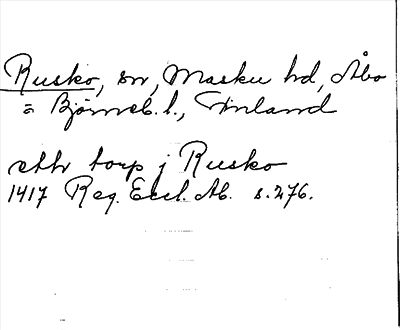 Rusko, sn, Masku hd, Åbo
= Björneb. l., Finland
etth torp j Rusko
1417 Reg. Eccl. Ab. s. 276.